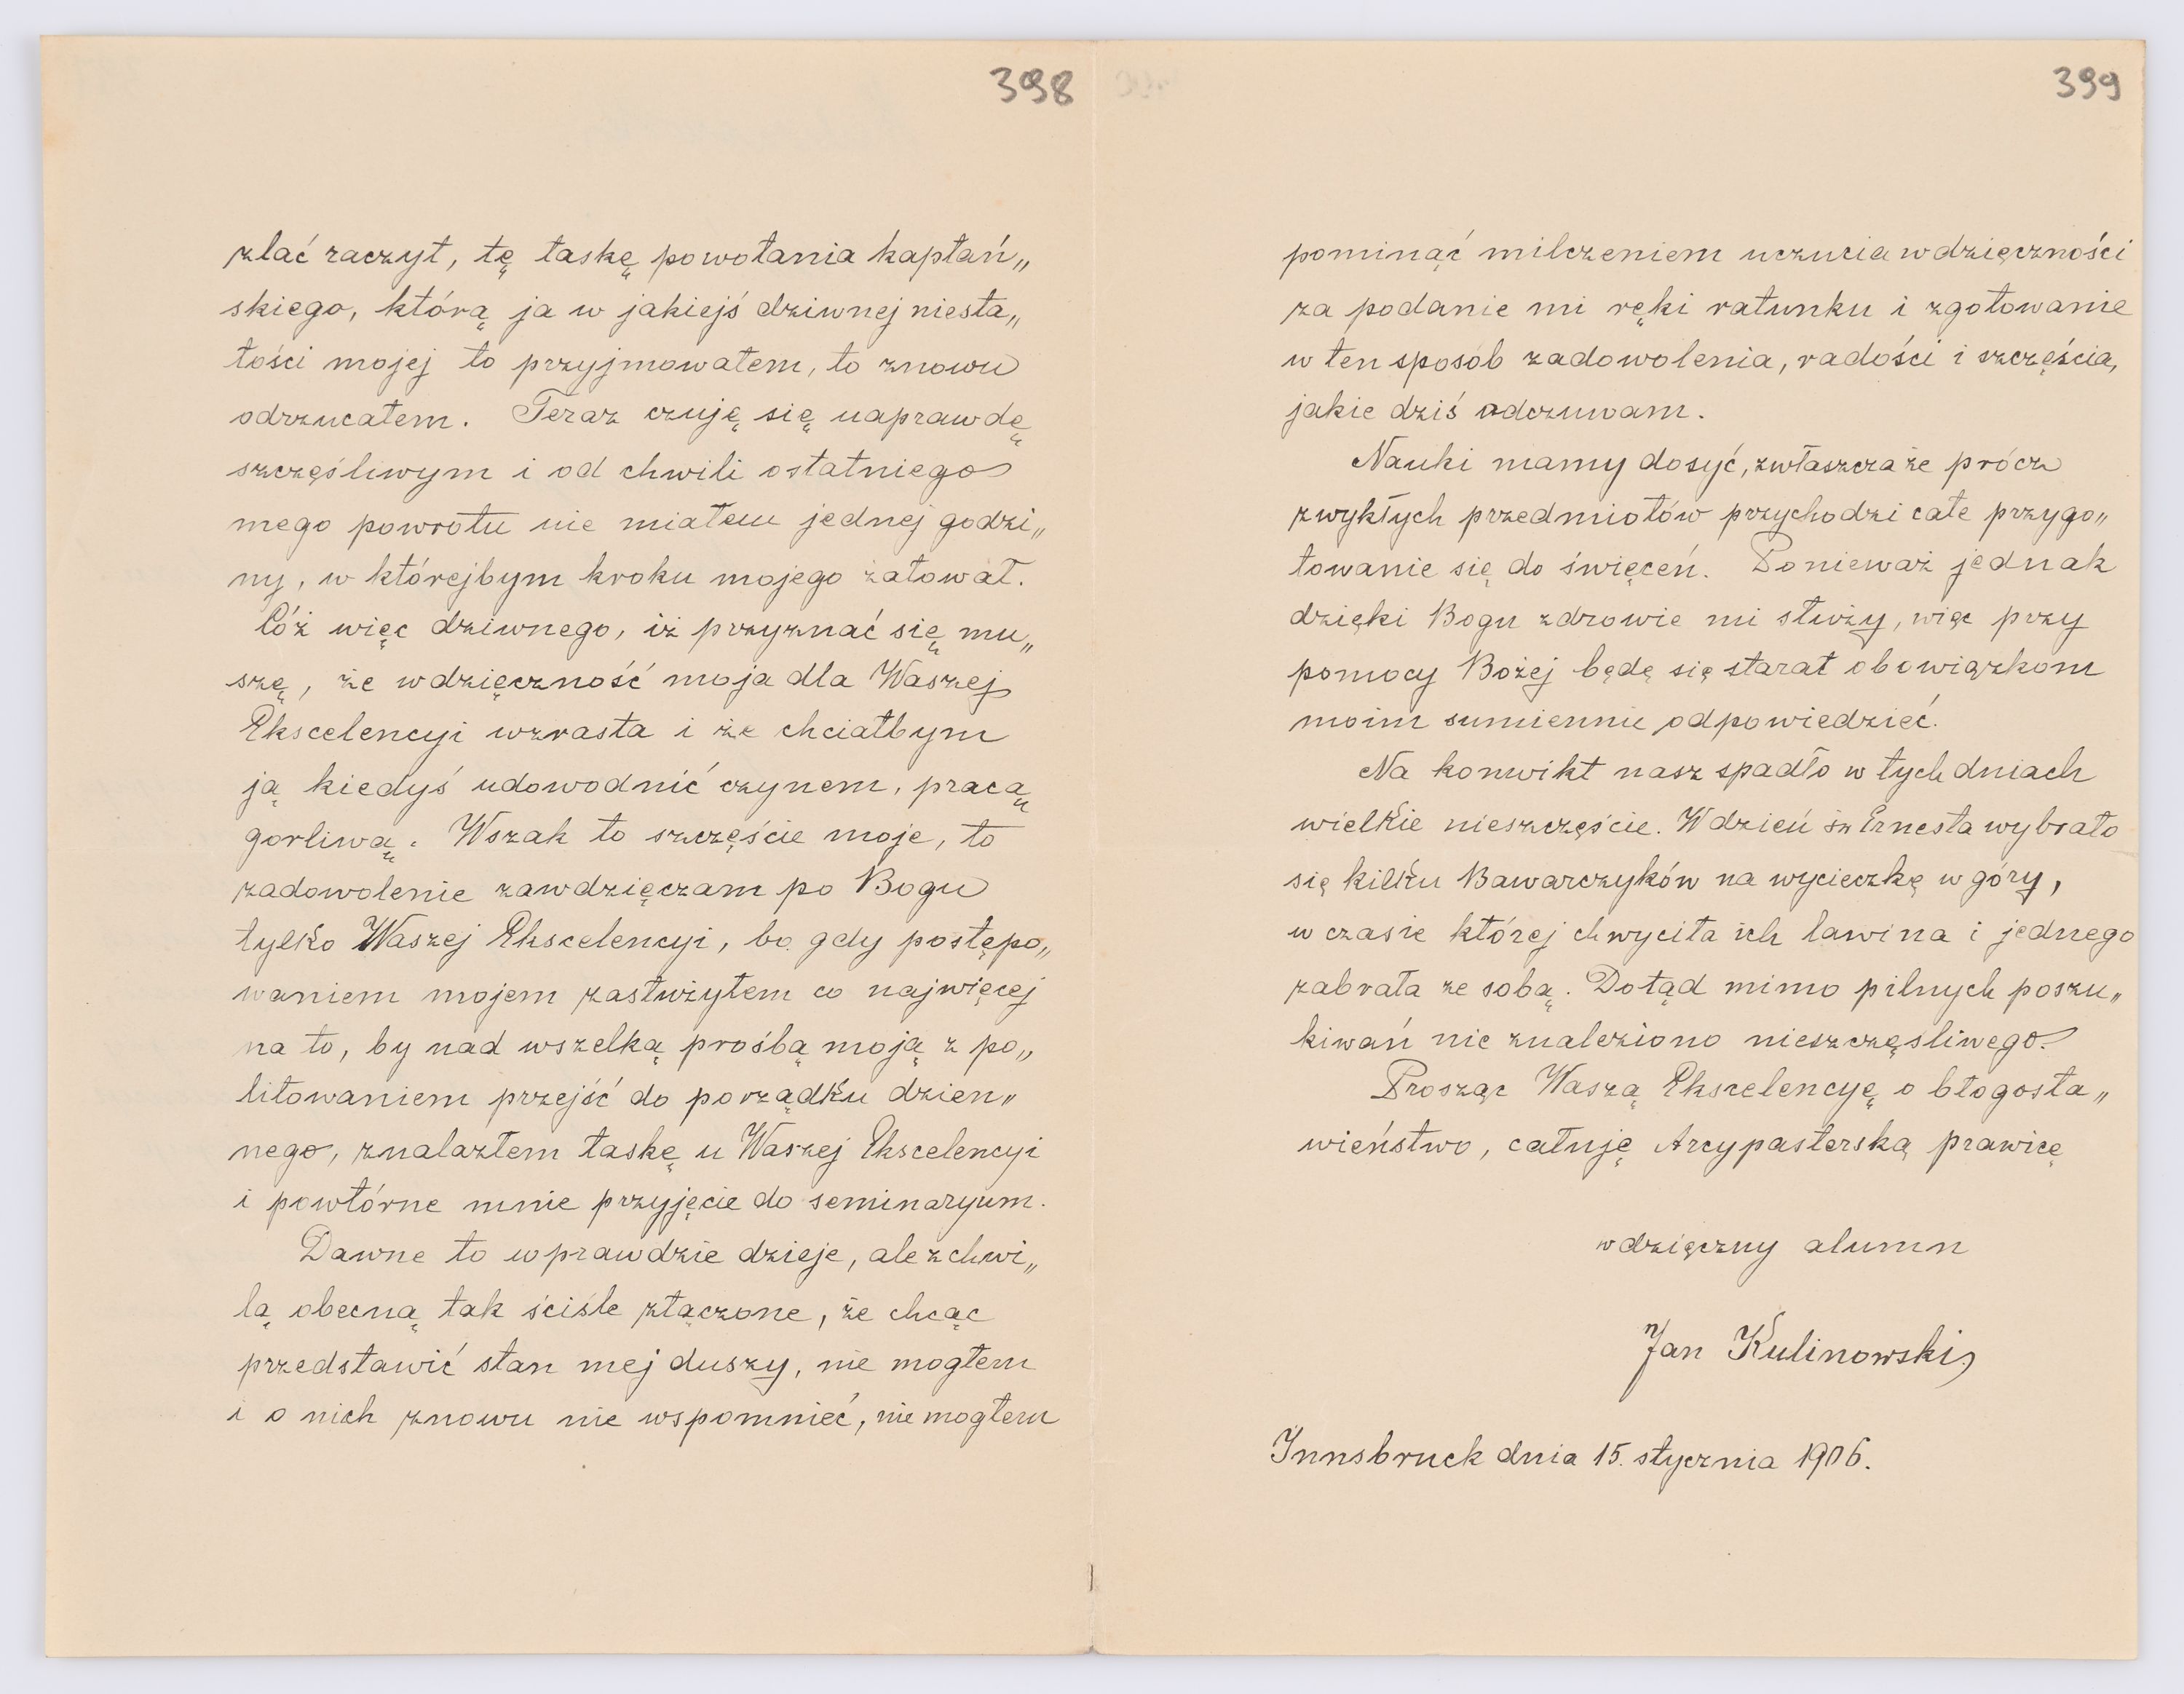 398
zlać raczył, tę łaskę powołania kapłań„
skiego, którą ja w jakiejś dziwnej niesta„
łości mojej to przyjmowałem, to znowu
odrzucałem. Teraz czuję się naprawdę
szczęśliwym i od chwili ostatniego
mego powrotu nie miałem jednej godzi„
ny, w którejbym kroku mojego żałował.
Cóż więc dziwnego, iż przyznać się mu„
szę, że wdzięczność moja dla Waszej
Ekscelencyi wzrasta i że chciałbym
ją kiedyś udowodnić czynem, pracą
gorliwą. Wszak to szczęście moje, to
zadowolenie zawdzięczam po Bogu
tylko Waszej Ekscelencyi, bo gdy postępo„
waniem mojem zasłużyłem co najwięcej
na to, by nad wszelką prośbą moją z po„
litowaniem przejść do porządku dzien„
nego, znalazłem łaskę u Waszej Ekscelencyi
i powtórne mnie przyjęcie do seminaryum.
Dawne to wprawdzie dzieje, ale z chwi„
lą obecną tak ściśle złączone, że chcąc
przedstawić stan mej duszy, nie mogłem
i o nich znowu nie wspomnieć, nie mogłem
399
pominąć milczeniem uczucia wdzięczności
za podanie mi ręki ratunku i zgotowanie
w ten sposób zadowolenia, radości i szczęścia,
jakie dziś odczuwam.
Nauki mamy dosyć, zwłaszcza że prócz
zwykłych przedmiotów przychodzi całe przygo„
towanie się do święceń. Ponieważ jednak
dzięki Bogu zdrowie mi służy, więc przy
pomocy Bożej będę się starał obowiązkom
moim sumiennie odpowiedzieć.
Na konwikt nasz spadło w tych dniach
wielkie nieszczęście. W dzień św Ernesta wybrało
się kilku Bawarczyków na wycieczkę w góry,
w czasie której chwyciła ich lawina i jednego
zabrała ze sobą. Dotąd mimo pilnych poszu„
kiwań nie znaleziono nieszczęśliwego.
Prosząc Waszą Ekscelencyę o błogosła„
wieństwo, całuję Arcypasterską prawicę
wdzięczny alumn
Jan Kulinowski
Innsbruck dnia 15. stycznia 1906.